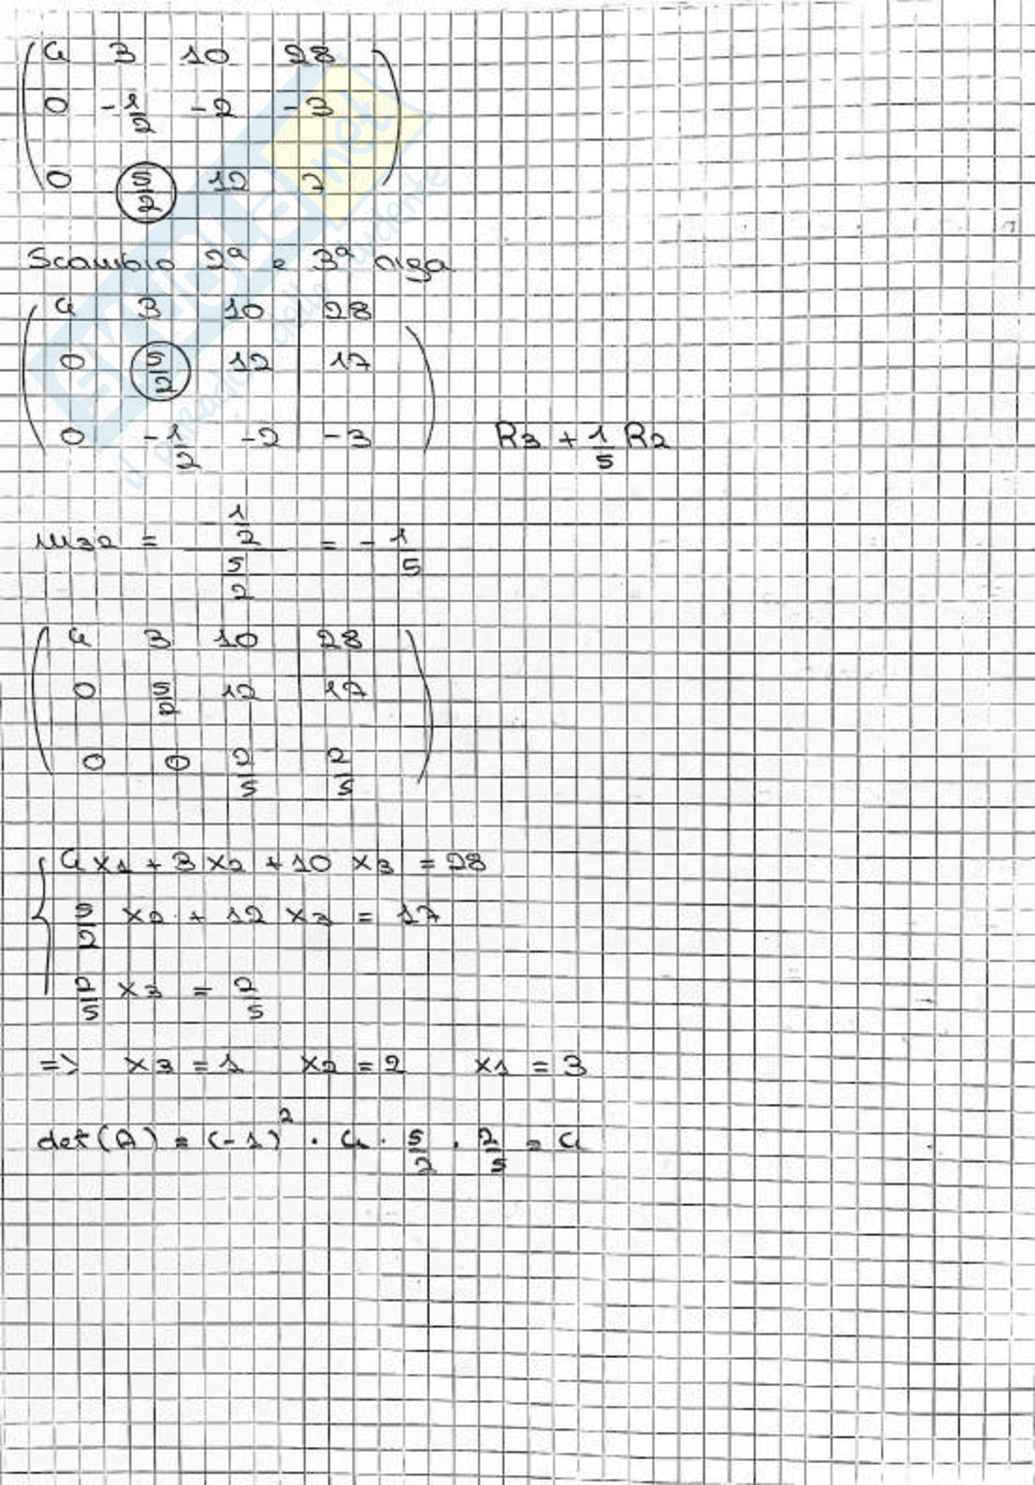 4 3 10 28
0 -1/2 -2 -3
0 5/2 12 7
Scambio 2ª e 3ª riga
4 3 10 28
0 5/2 12 17
0 -1/2 -2 -3 R3 + 1/5 R2
m32 = 1/2 / 5/2 = - 1/5
4 3 10 28
0 5/2 12 17
0 0 2/5 2/5
4x1 + 3x2 + 10x3 = 28
5/2 x2 + 12x3 = 17
2/5 x3 = 2/5
=> x3 = 1 x2 = 2 x1 = 3
det(A) = (-1)² · 4 · 5/2 · 2/5 = 4